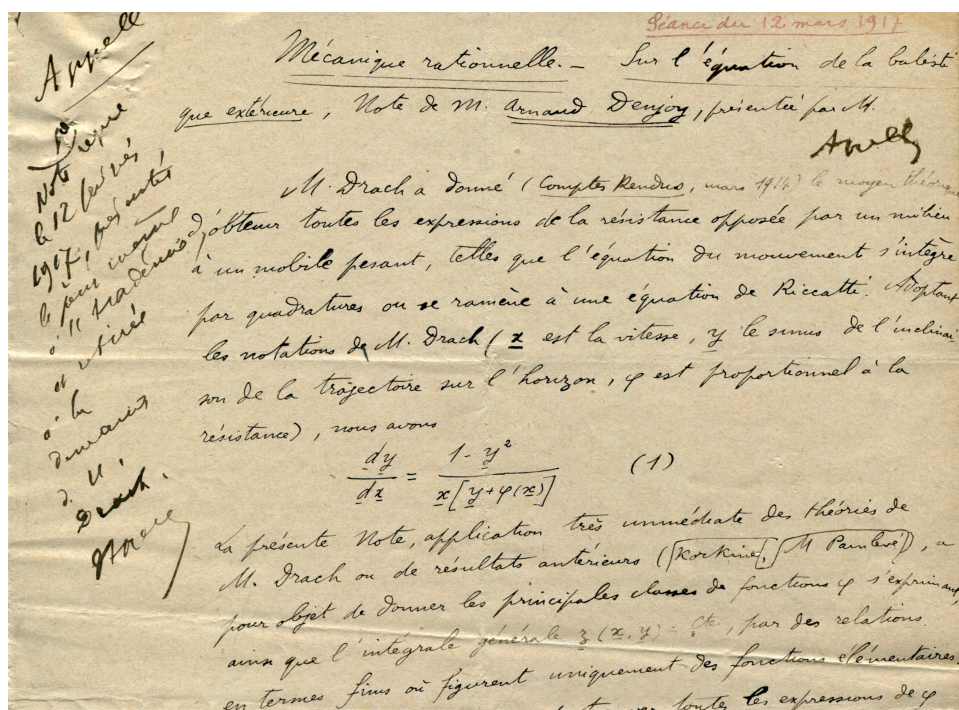 Séance du 12 mars 1917
Mécanique rationnelle. – Sur l'équation de la balisti
que extérieure, Note de M. Arnaud Denjoy, présentée par M.
Appell
M. Drach a donné (Comptes Rendus, mars 1914) le moyen théorique
d'obtenir toutes les expressions de la résistance opposée par un milieu
à un mobile pesant, telles que l'équation du mouvement s'intègre
par quadratures ou se ramène à une équation de Riccatti. Adoptant
les notations de M. Drach (x est la vitesse, y le sinus de l'inclinai-
son de la trajectoire sur l'horizon, φ est proportionnel à la
résistance), nous avons
dy/dx = (1 - y²)/(x[y+φ(x)]) (1)
La présente Note, application très immédiate des théories de
M. Drach ou de résultats antérieurs (Korkine, M Painlevé), a
pour objet de donner les principales classes de fonctions φ s'exprimant,
ainsi que l'intégrale générale z(x,y) = cte, par des relations
en termes finis où figurent uniquement des fonctions élémentaires.
toutes les expressions de φ
Appell
Note reçue
le 12 février
1917, présentée
le jour même
à l'Académie
et retirée
à la
demande
de M.
Drach.
Appell